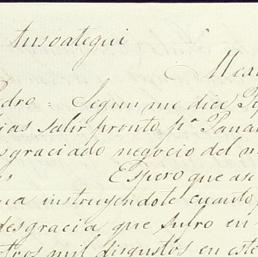 Ansoategui
Mex
Pedro = Segun me dice Pe
ias salir pronto pª Pana
sgraciado negocio del m
Espero que ase
na instruyendote cuanto
desgracia, que sufro en
otros mil disgustos en este